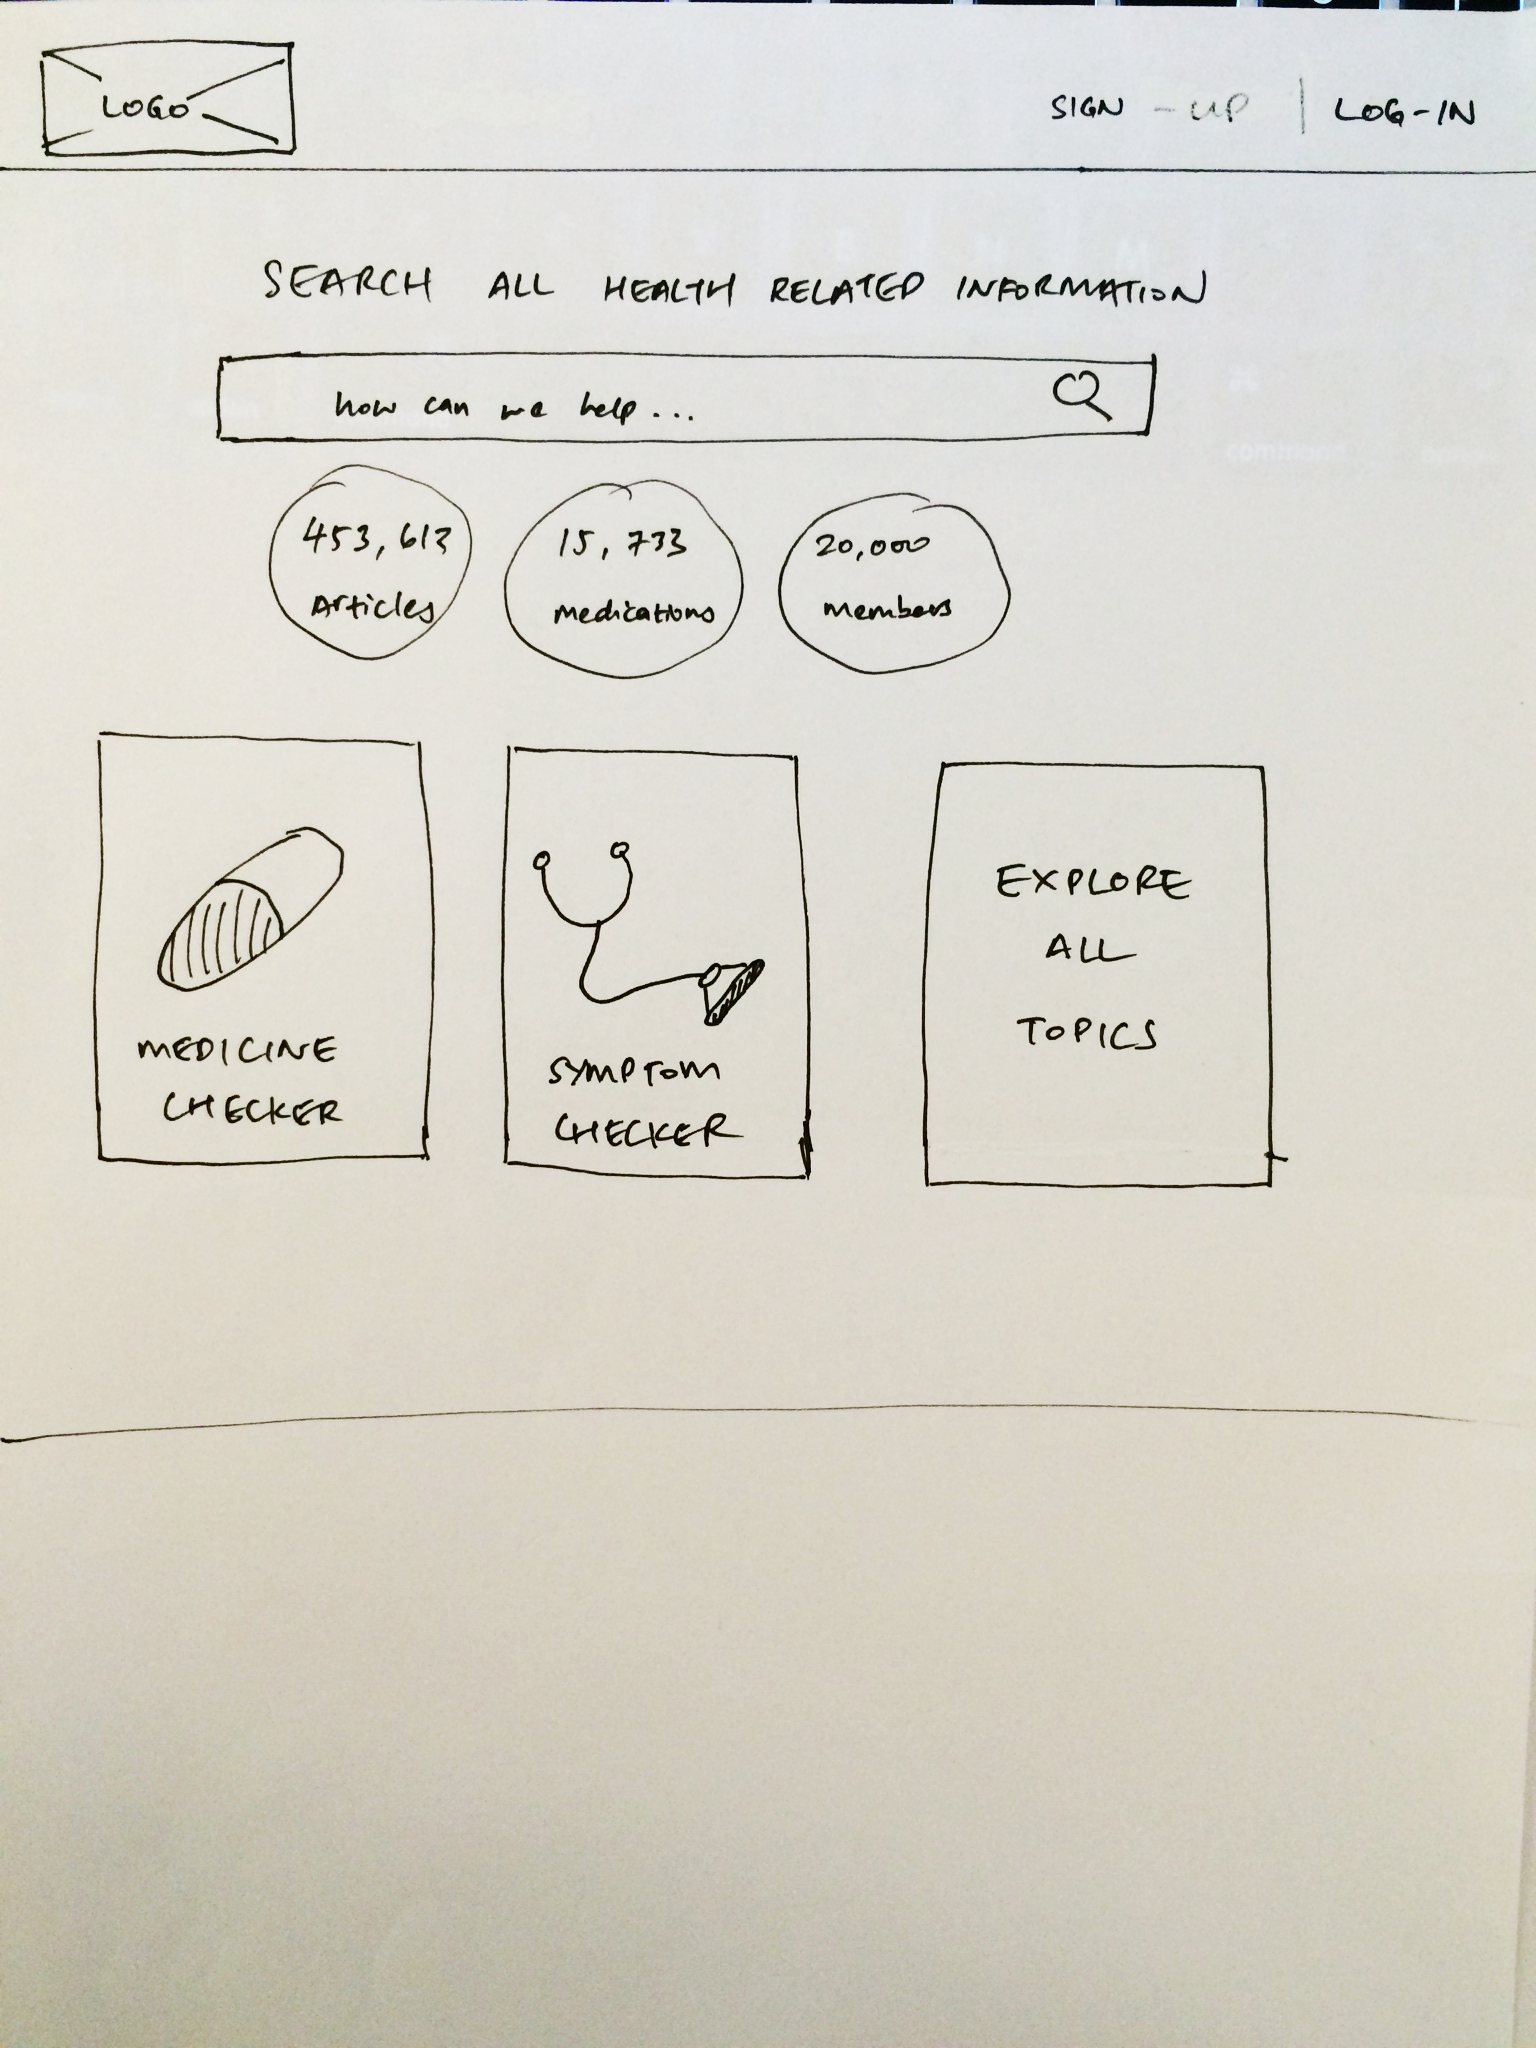 LOGO
SIGN - UP | LOG-IN
SEARCH ALL HEALTH RELATED INFORMATION
how can we help...
453,613 15,733 20,000
Articles medications members
MEDICINE
CHECKER
SYMPTOM
CHECKER
EXPLORE
ALL
TOPICS
command